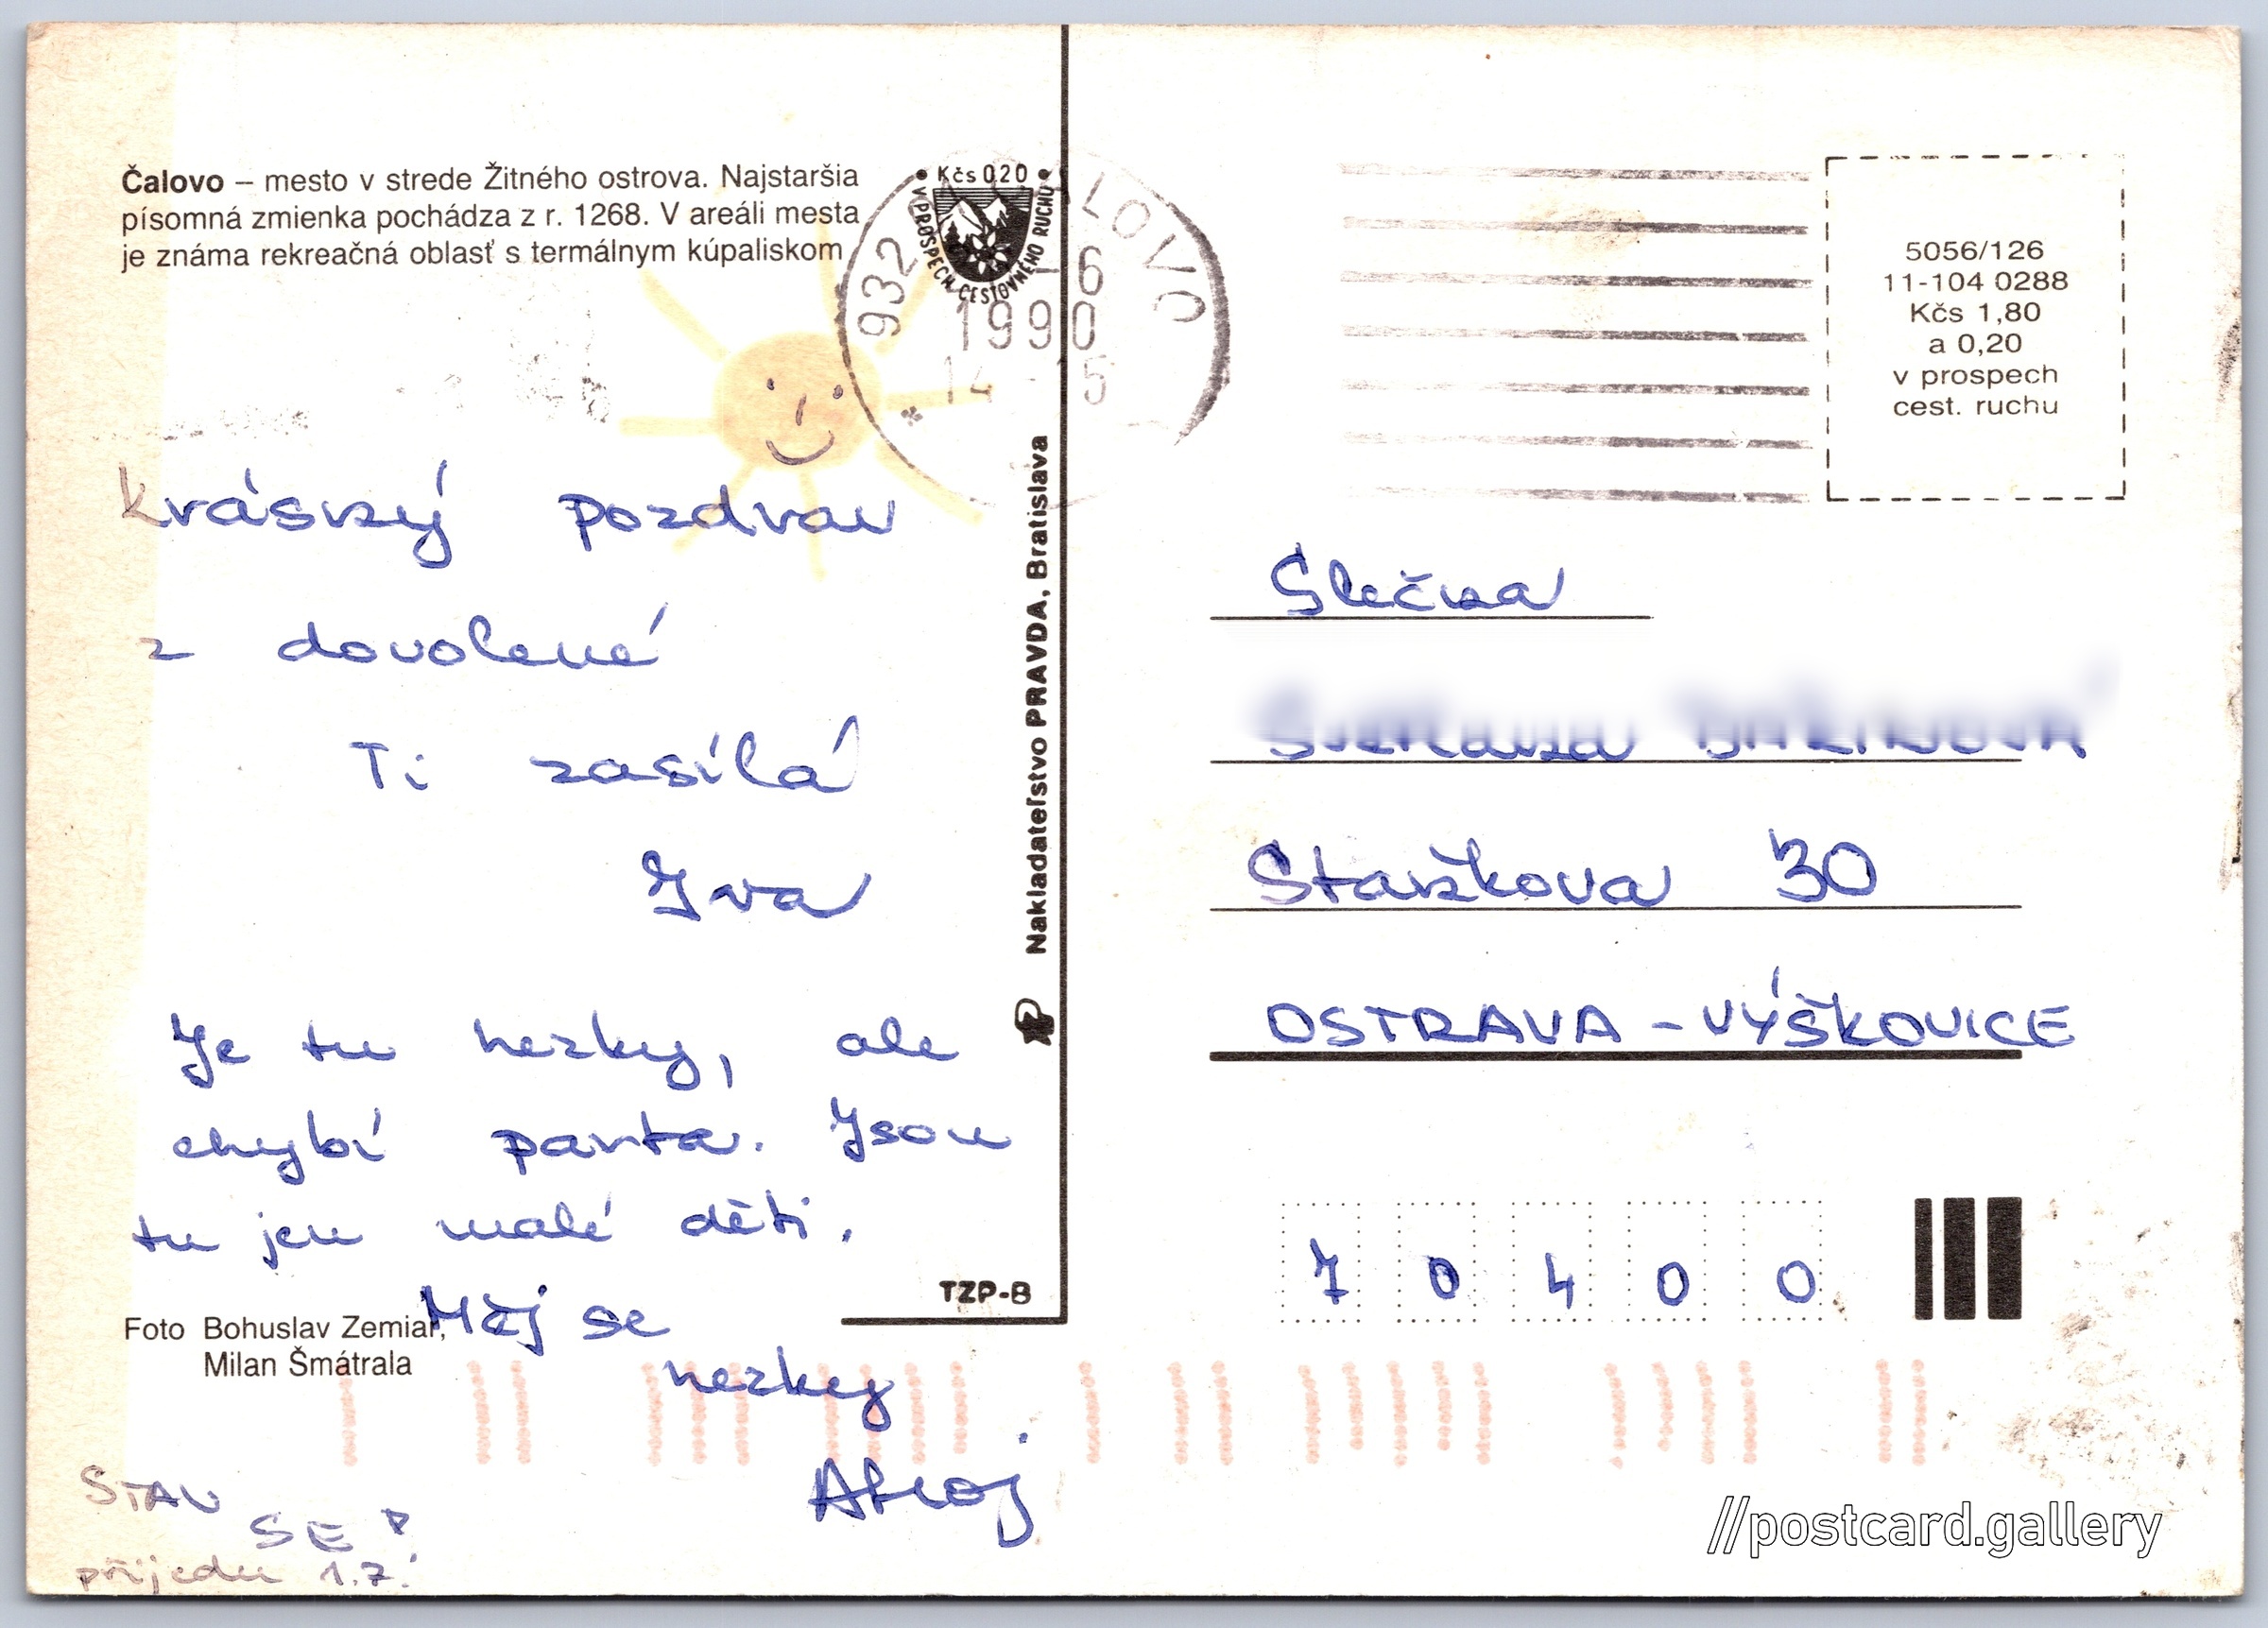 Čalovo – mesto v strede Žitného ostrova. Najstaršia
písomná zmienka pochádza z r. 1268. V areáli mesta
je známa rekreačná oblasť s termálnym kúpaliskom
• Kčs 0,20 •
V PROSPECH CESTOVNÉHO RUCHU
932 ALOVO
6
1990
14 15
5056/126
11-104 0288
Kčs 1,80
a 0,20
v prospech
cest. ruchu
Krásný pozdrav
z dovolené
Ti zasílá
Iva
Je tu hezky, ale
chybí parta. Jsou
tu jen malé děti.
Měj se
hezky
Ahoj
STAV
SE
přijedu 1.7.!
Foto Bohuslav Zemiar,
Milan Šmátrala
Nakladateľstvo PRAVDA, Bratislava
TZP-B
Slečna
Staňkova 30
OSTRAVA - VÝŠKOVICE
7 0 4 0 0
//postcard.gallery